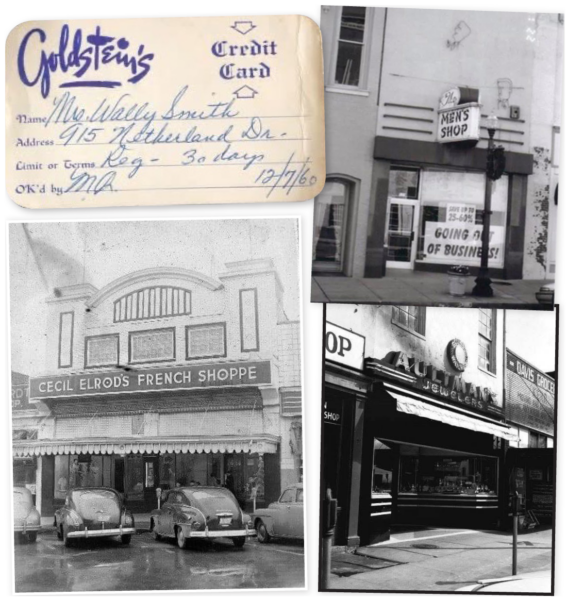 Goldstein's
Credit
Card
Name Mrs. Wally Smith
Address 915 Netherland Dr.
Limit or Terms Reg - 30 days
OK'd by M.R. 12/7/60
MEN'S
SHOP
SAVE UP TO
25-60%
GOING OUT
OF BUSINESS!
CECIL ELROD'S FRENCH SHOPPE
OP
SHOP
AULTMAN
JEWELERS
DAVIS GROCE